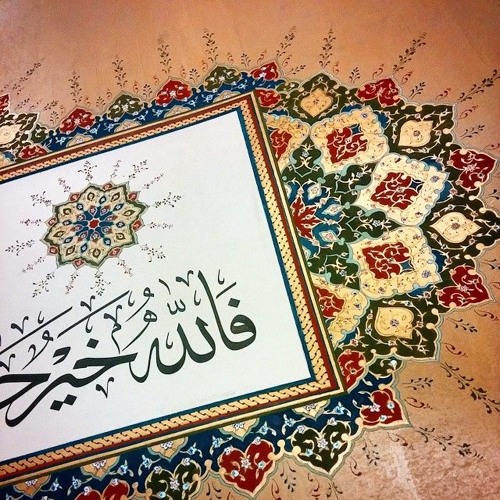 فَاللَّهُ خَيْرٌ